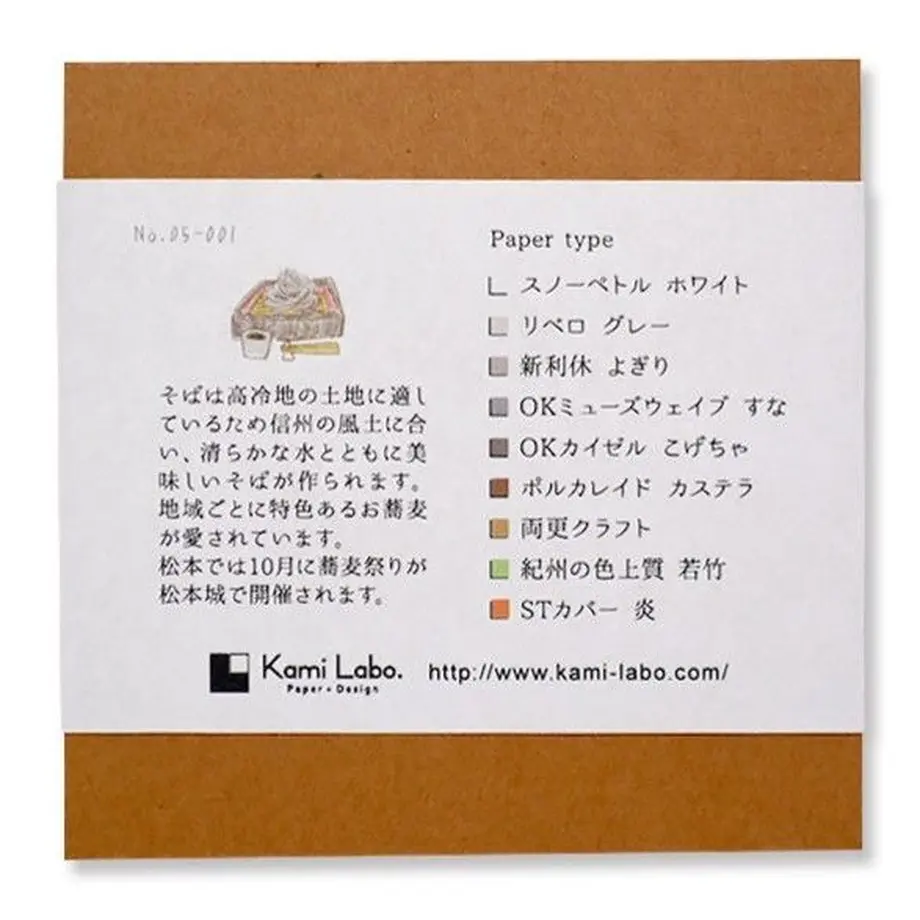 No.05-001
そばは高冷地の土地に適し
ているため信州の風土に合
い、清らかな水とともに美
味しいそばが作られます。
地域ごとに特色あるお蕎麦
が愛されています。
松本では10月に蕎麦祭りが
松本城で開催されます。
Paper type
スノーペトル ホワイト
リベロ グレー
新利休 よぎり
OKミューズウェイブ すな
OKカイゼル こげちゃ
ポルカレイド カステラ
両更クラフト
紀州の色上質 若竹
STカバー 炎
Kami Labo.
Paper + Design
http://www.kami-labo.com/